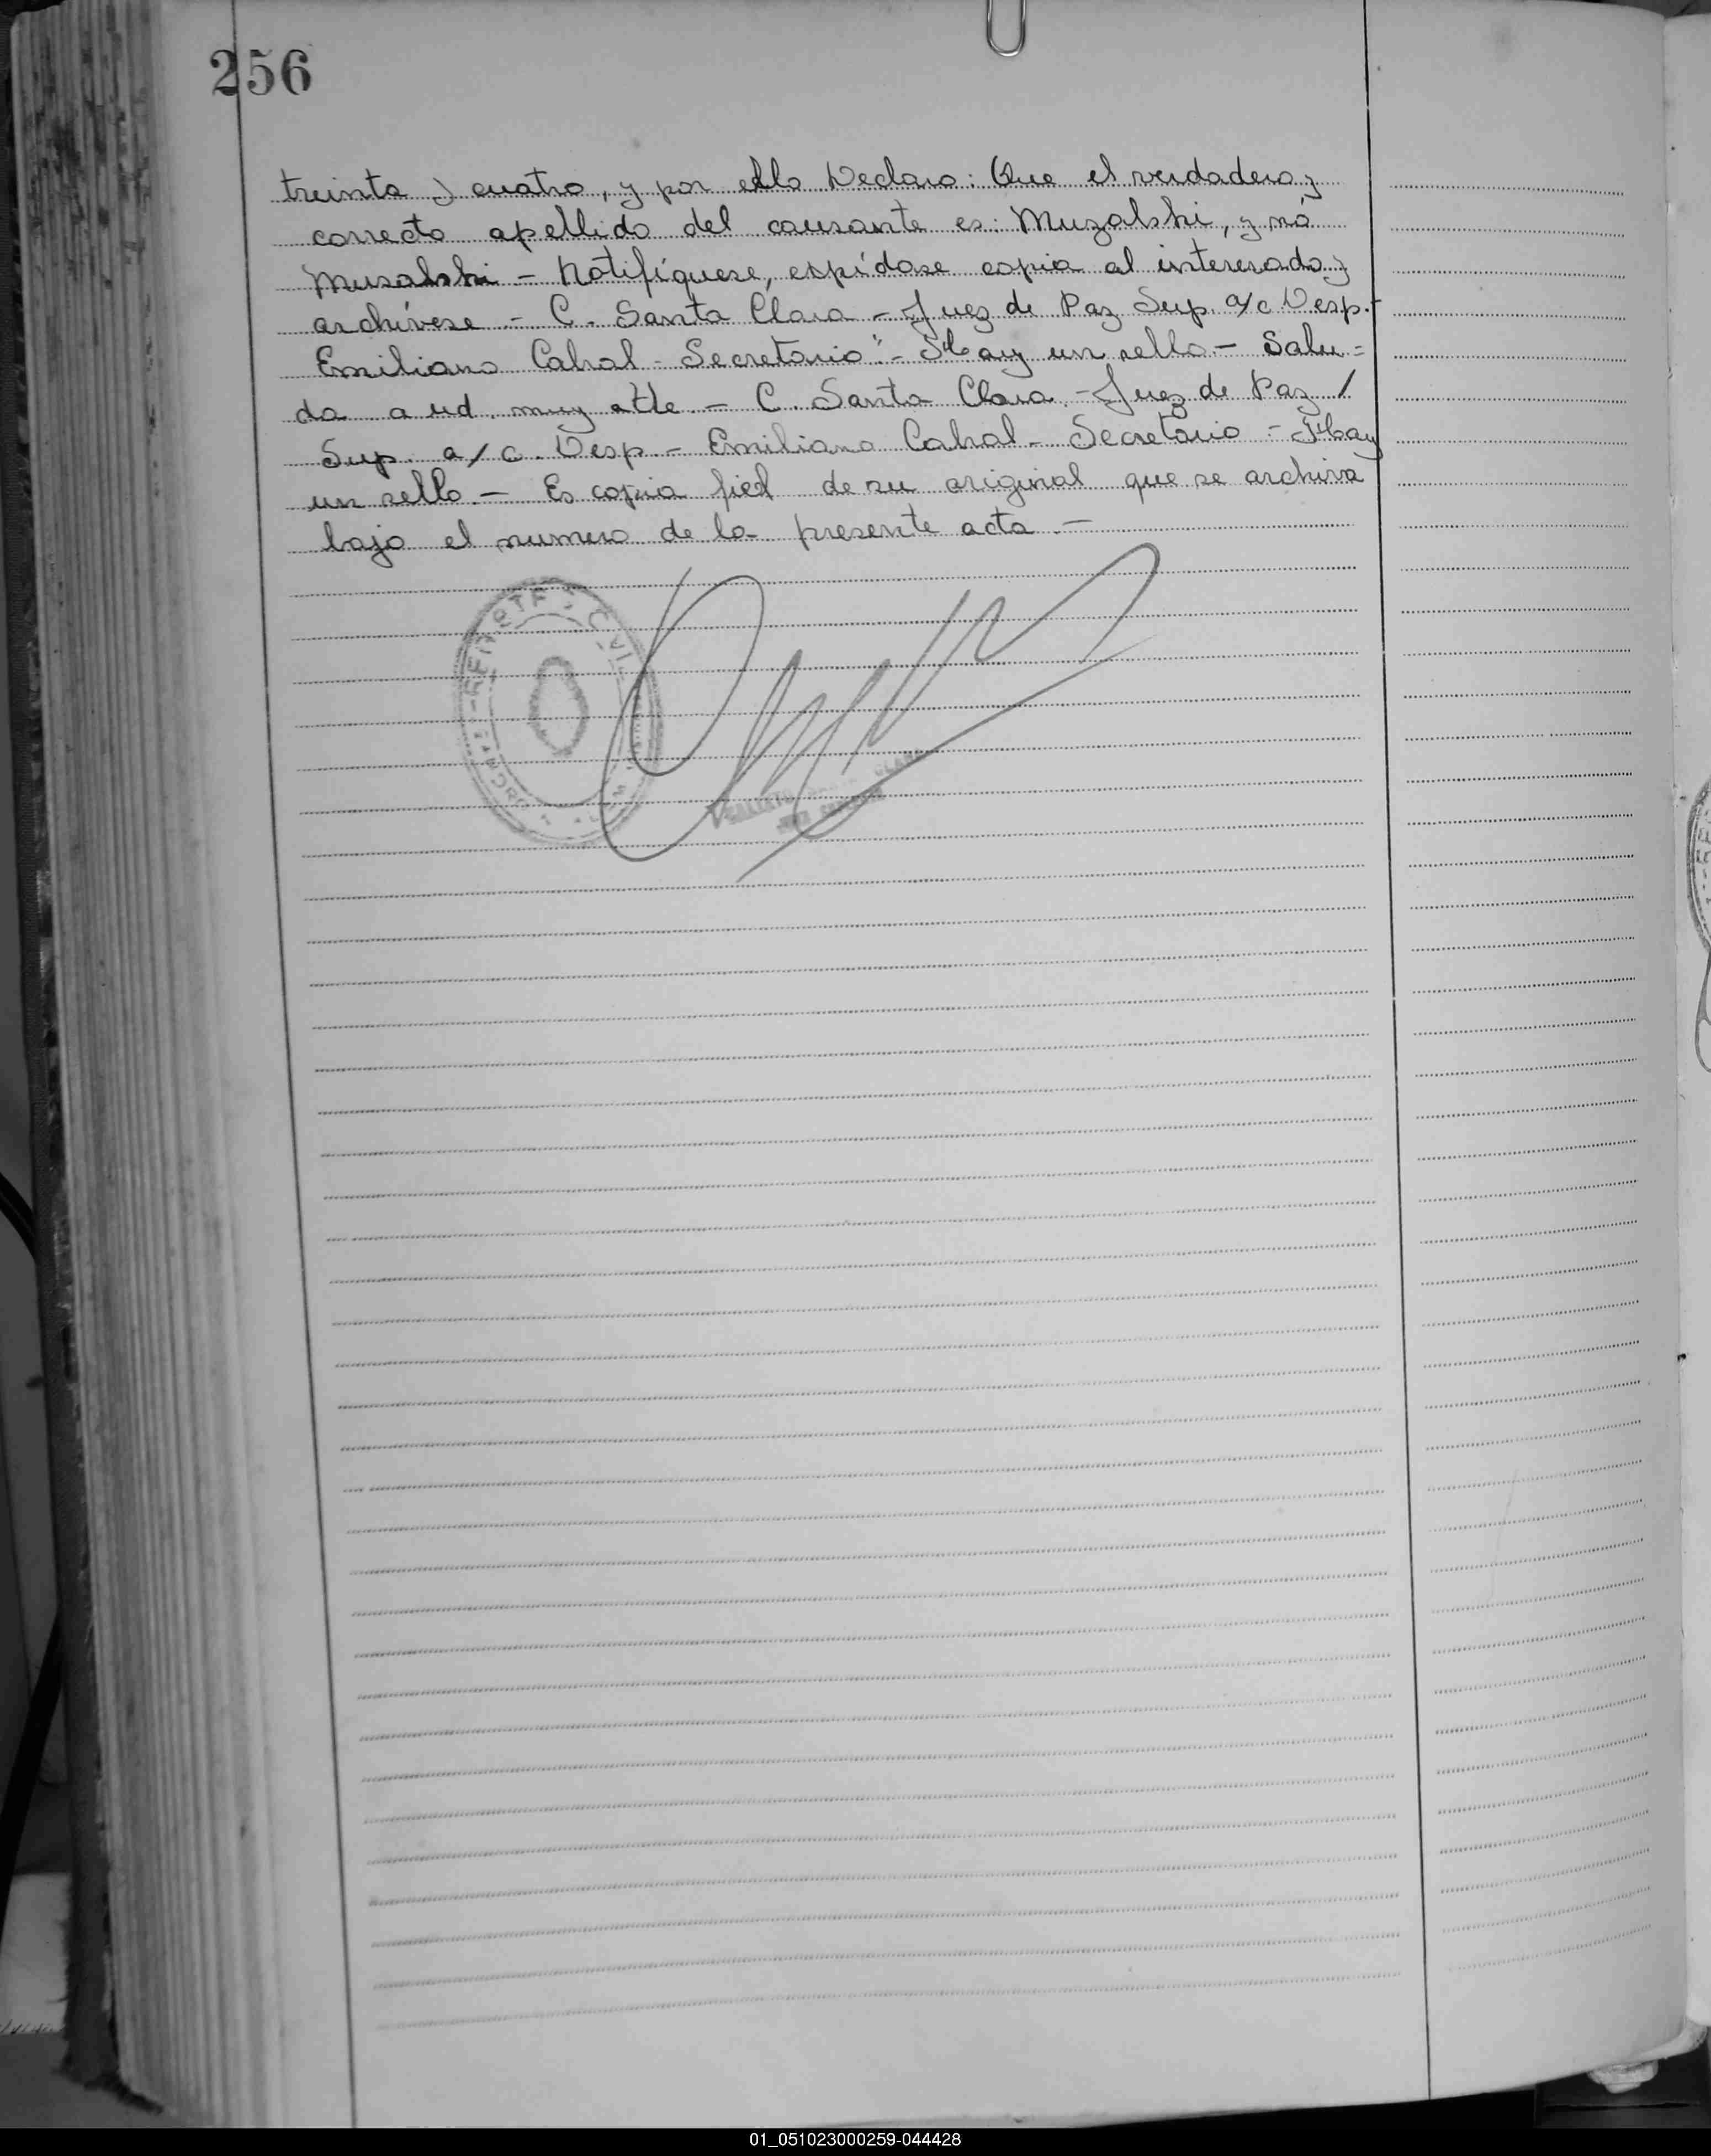 256
treinta y cuatro, y por ello Declaro: Que el verdadero y
correcto apellido del causante es: Muzalski, y nó
Musalski - Notifíquese, espídase copia al interesado y
archívese - C. Santa Clara - Juez de Paz Sup. a/c Desp.-
Emiliano Cabral - Secretario" - Hay un sello - Salu=
da a ud. muy atte. - C. Santa Clara - Juez de Paz /
Sup. a/c. Desp. - Emiliano Cabral - Secretario - Hay
un sello. - Es copia fiel de su original que se archiva
bajo el numero de la presente acta. -
01_051023000259-044428